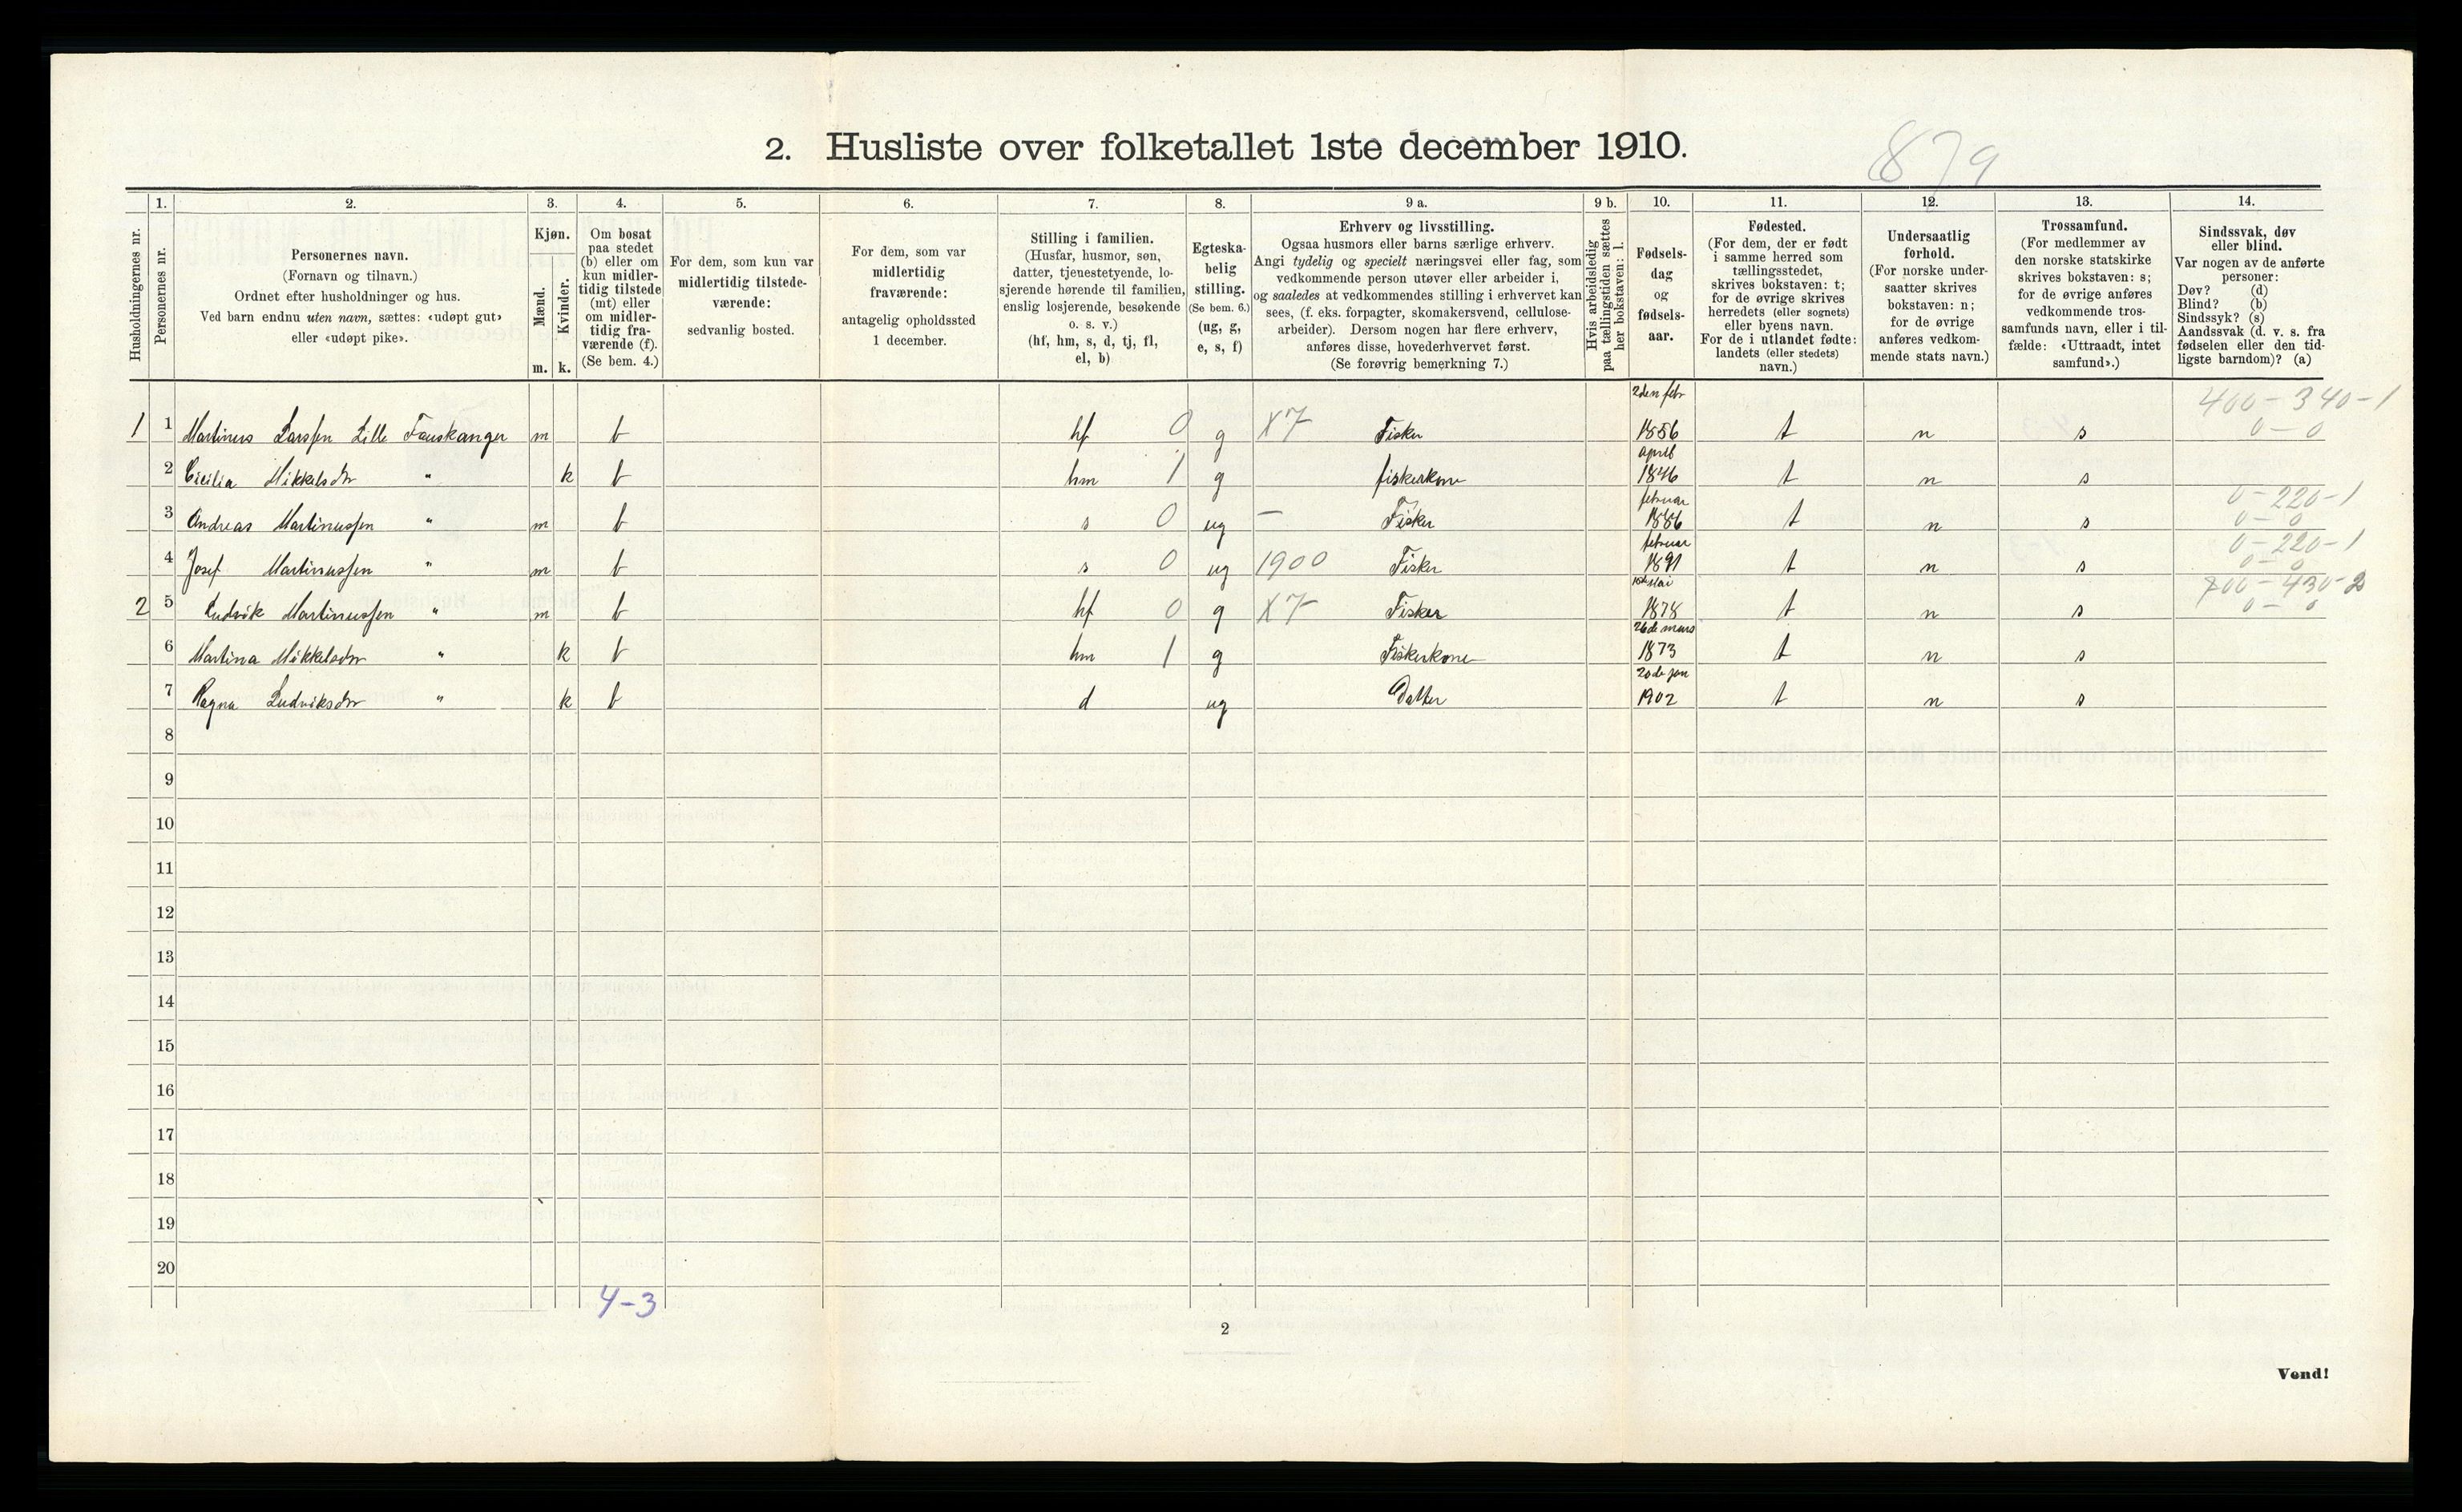 879
2. Husliste over folketallet 1ste december 1910.
Husholdningernes nr.
1.
Personernes nr.
2.
Personernes navn.
(Fornavn og tilnavn.)
Ordnet efter husholdninger og hus.
Ved barn endnu uten navn, sættes: «udøpt gut»
eller «udøpt pike».
3.
Kjøn.
Mænd.
Kvinder.
m. k.
4.
Om bosat
paa stedet
(b) eller om
kun midler-
tidig tilstede
(mt) eller
om midler-
tidig fra-
værende (f).
(Se bem. 4.)
5.
For dem, som kun var
midlertidig tilstede-
værende:
sedvanlig bosted.
6.
For dem, som var
midlertidig
fraværende:
antagelig opholdssted
1 december.
7.
Stilling i familien.
(Husfar, husmor, søn,
datter, tjenestetyende, lo-
sjerende hørende til familien,
enslig losjerende, besøkende
o. s. v.)
(hf, hm, s, d, tj, fl,
el, b)
8.
Egteska-
belig
stilling.
(Se bem. 6.)
(ug, g,
e, s, f)
9 a.
Erhverv og livsstilling.
Ogsaa husmors eller barns særlige erhverv.
Angi tydelig og specielt næringsvei eller fag, som
vedkommende person utøver eller arbeider i,
og saaledes at vedkommendes stilling i erhvervet kan
sees, (f. eks. forpagter, skomakersvend, cellulose-
arbeider). Dersom nogen har flere erhverv,
anføres disse, hovederhvervet først.
(Se forøvrig bemerkning 7.)
9 b.
Hvis arbeidsledig
paa tællingstiden sættes
her bokstaven: l.
10.
Fødsels-
dag
og
fødsels-
aar.
11.
Fødested.
(For dem, der er født
i samme herred som
tællingsstedet,
skrives bokstaven: t;
for de øvrige skrives
herredets (eller sognets)
eller byens navn.
For de i utlandet fødte:
landets (eller stedets)
navn.)
12.
Undersaatlig
forhold.
(For norske under-
saatter skrives
bokstaven: n;
for de øvrige
anføres vedkom-
mende stats navn.)
13.
Trossamfund.
(For medlemmer av
den norske statskirke
skrives bokstaven: s;
for de øvrige anføres
vedkommende tros-
samfunds navn, eller i til-
fælde: «Uttraadt, intet
samfund».)
14.
Sindssvak, døv
eller blind.
Var nogen av de anførte
personer:
Døv? (d)
Blind? (b)
Sindssyk? (s)
Aandssvak (d. v. s. fra
fødselen eller den tid-
ligste barndom)? (a)
2den febr 400-340-1
1 1 Martinus Larssen Lille Fauskanger m b hf 0 g X7 Fisker 1856 t n s 0-0
april
2 Cicilia Mikkelsdr " k b hm 1 g fiskerkone 1846 t n s
februar 0-220-1
3 Andreas Martinussen " m b s 0 ug — Fisker 1886 t n s 0-0
februar 0-220-1
4 Josef Martinussen " m b s 0 ug 1900 Fisker 1891 t n s 0-0
Mai
2 5 Ludvik Martinussen " m b hf 0 g X7 Fisker 1878 t n s 0-0
26de mars
6 Martina Mikkelsdr " k b hm 1 g Fiskerkone 1873 t n s
20de jan
7 Ragna Ludviksdr " k b d ug Datter 1902 t n s
8
9
10
11
12
13
14
15
16
17
18
19
20
4-3
2
Vend!